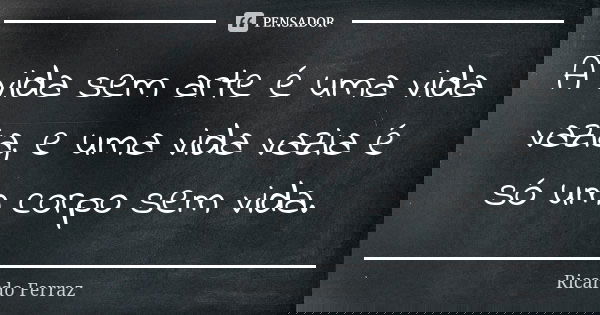 PENSADOR
A vida sem arte é uma vida
vazia, e uma vida vazia é
só um corpo sem vida.
Ricardo Ferraz